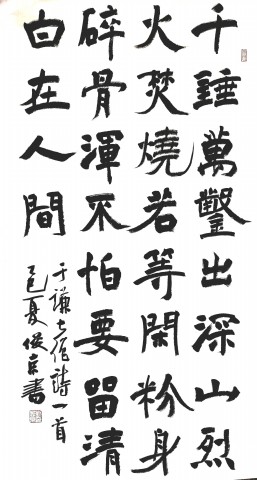 千錘萬鑿出深山烈
火焚燒若等閑粉身
碎骨渾不怕要留清
白在人間
于謙七絕詩一首
己巳夏俊京書